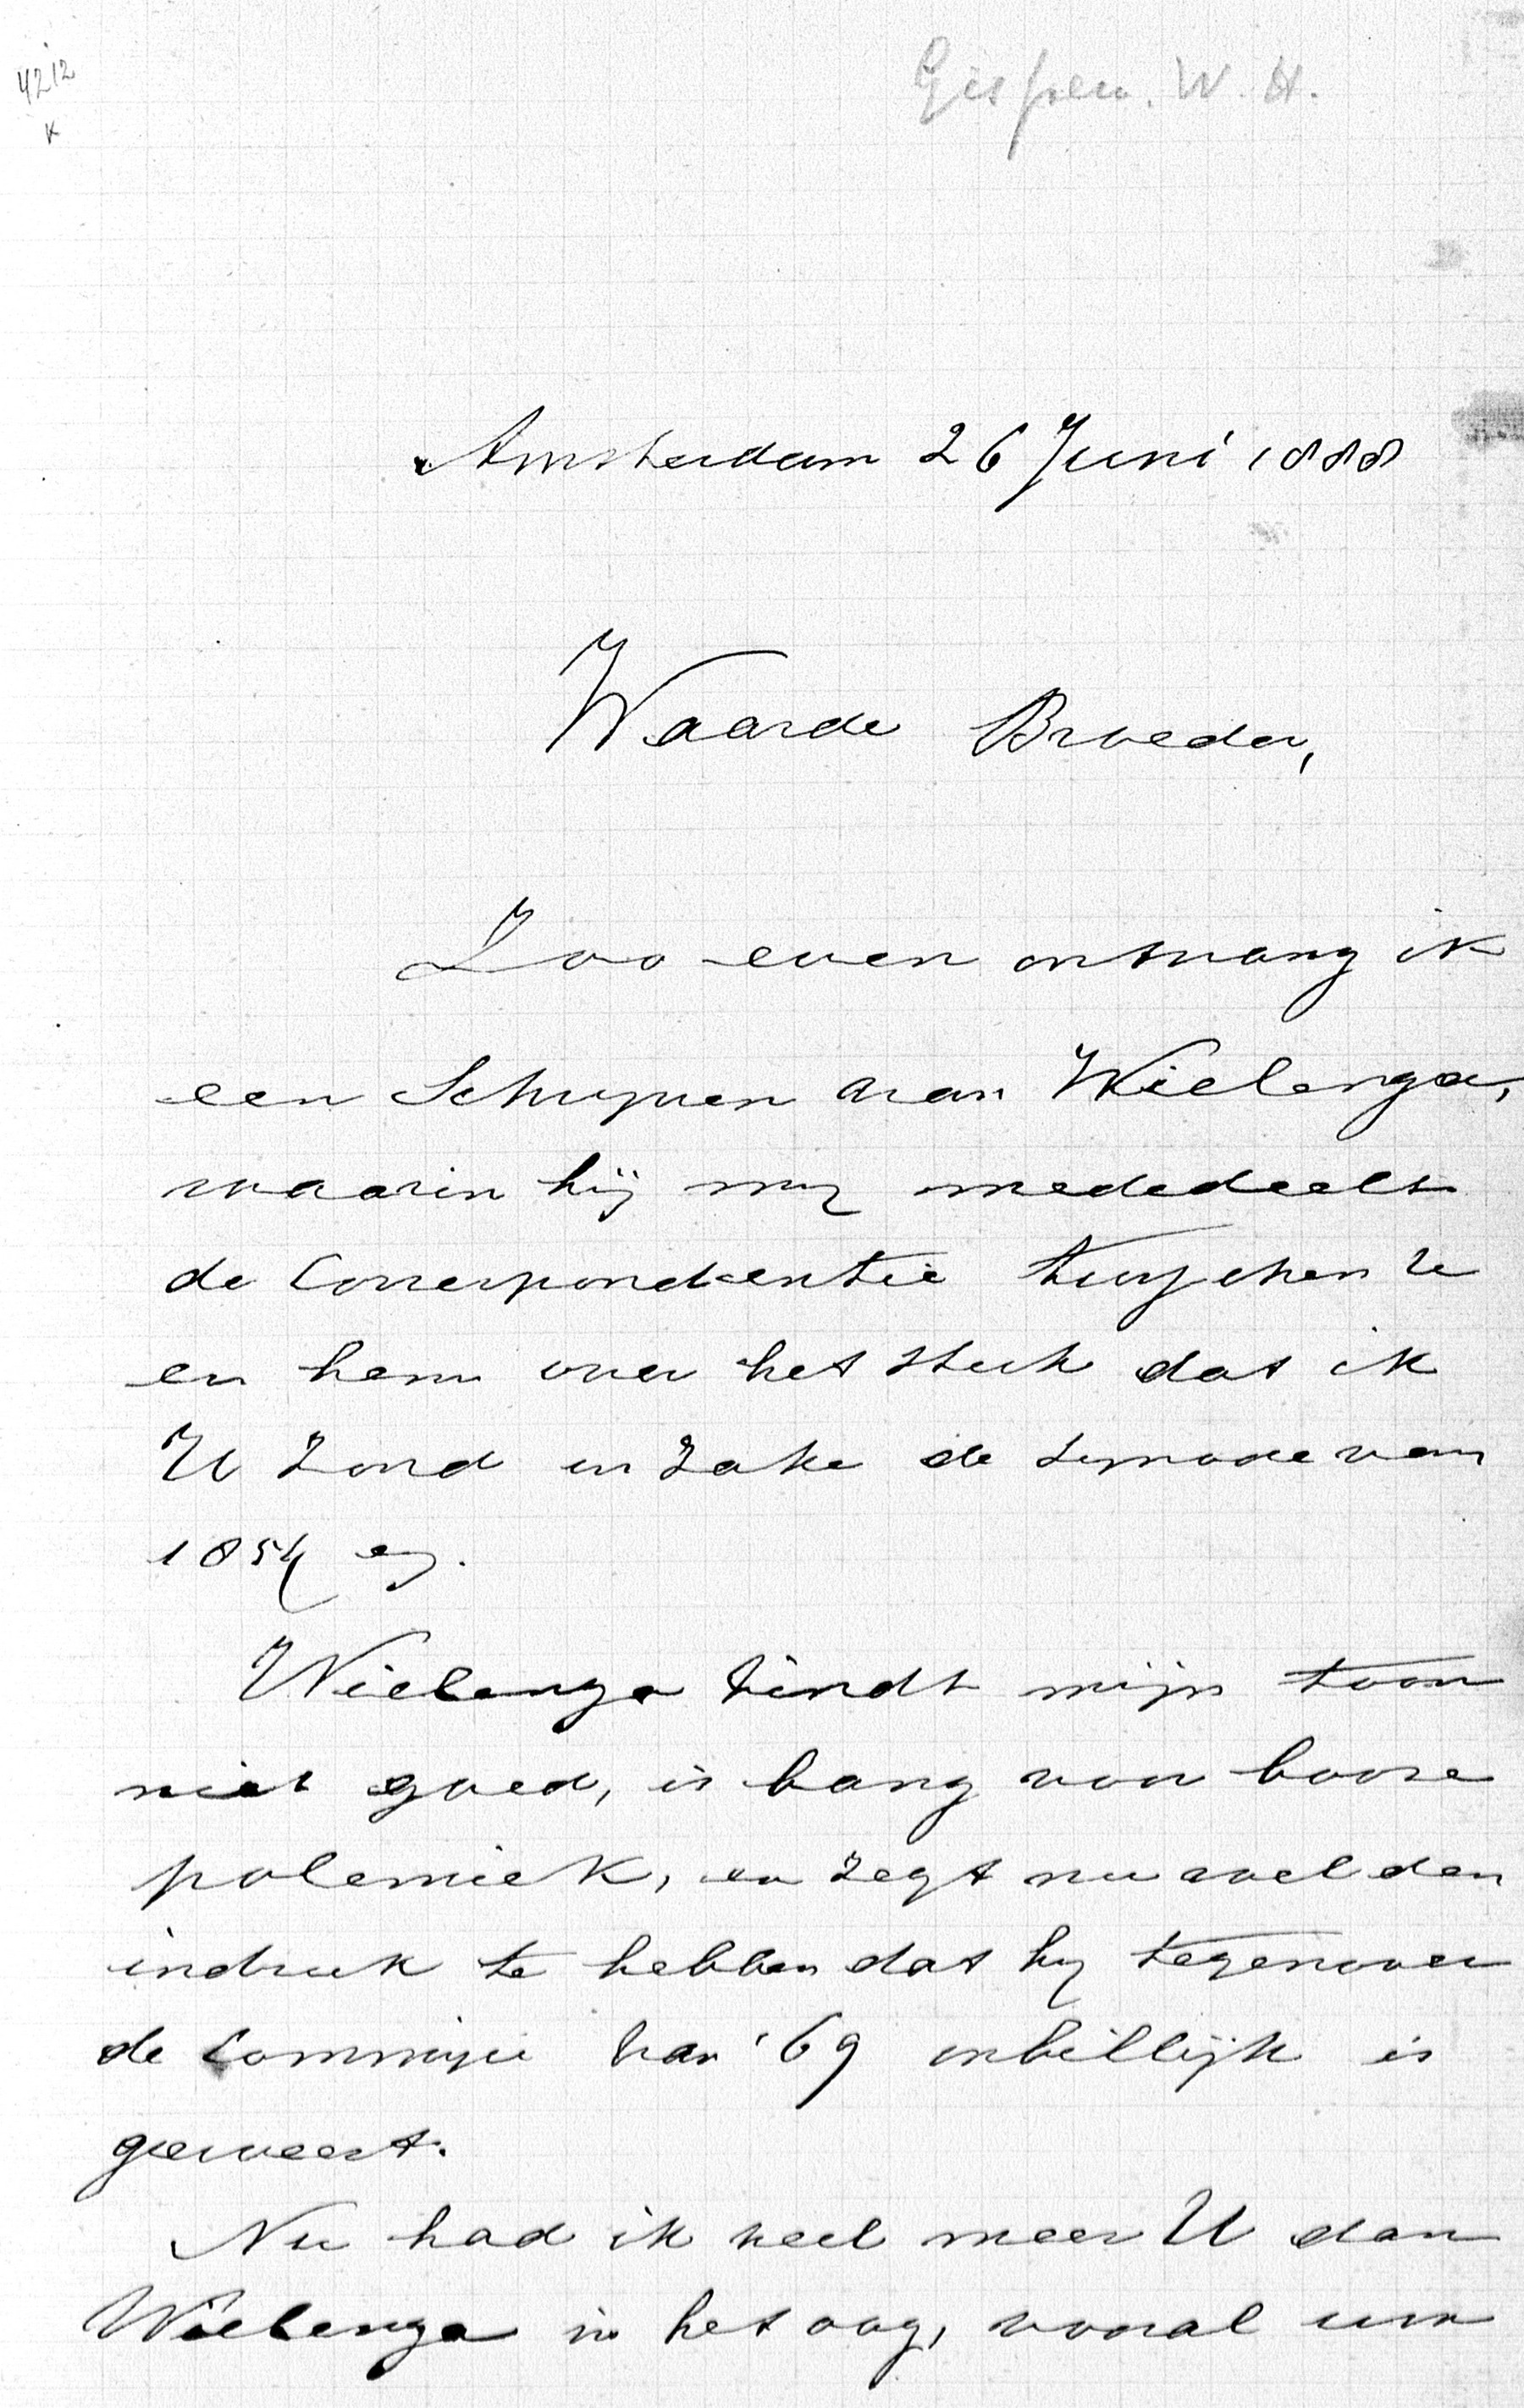 4212
K
Gispen. W. H.
Amsterdam 26 Juni 1888
Waarde Broeder,
Zoo even ontvang ik
een Schrijven van Wielenga,
waarin hij mij mededeelt
de Correspondentie tusschen U
en hem over het stuk dat ik
U zond in zake de Synode van
1854 ej.
Wielenga vindt mijn toon
niet goed, is bang voor booze
polemiek, en zegt nu wel den
indruk te hebben dat hij tegenover
de Commissie van '69 onbillijk is
geweest.
Nu had ik veel meer U dan
Wielenga in het oog, vooral uw